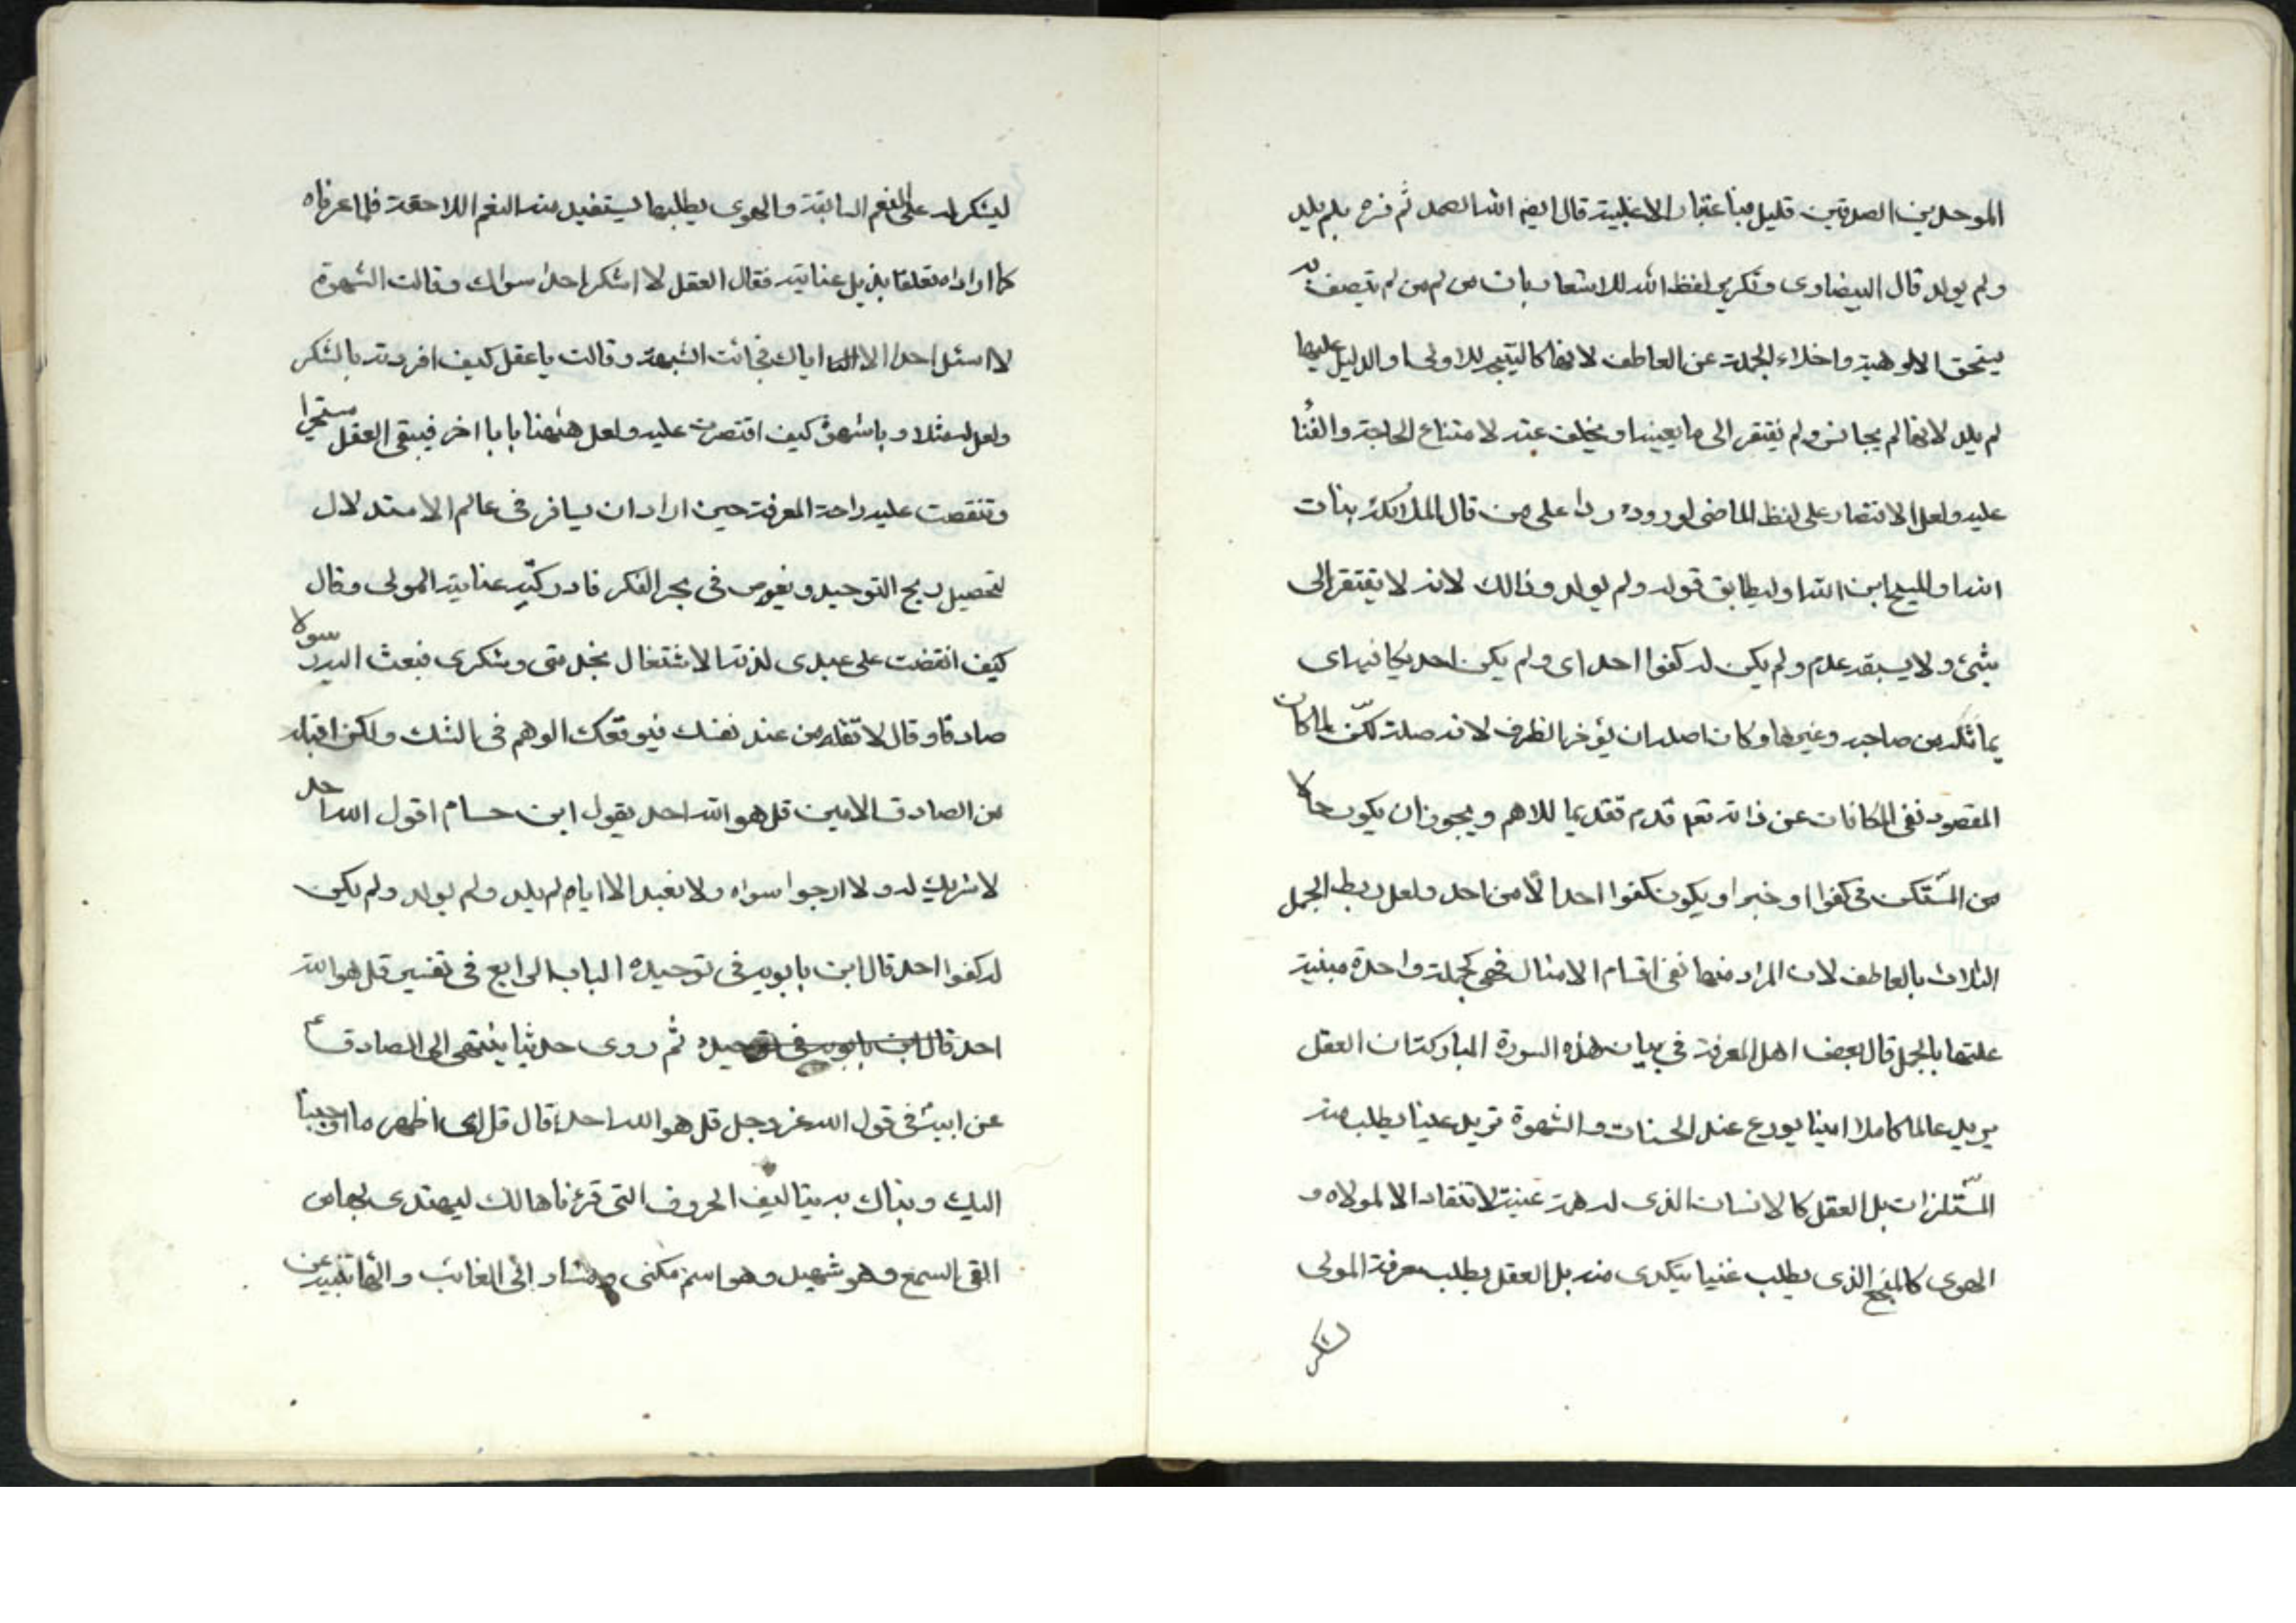 الموحدين الصدقين قليل مباعتبار الاغلبية قال ايضا الله الصمد ثم فسره بلم يلد
ولم يولد قال البيضاوى وتكرير لفظ الله للاشعار بان من لم يتصف به
يستحق الالوهية واخلاء الجملة عن العاطف لانها كالنتيجة للاولى او الدليل عليها
لم يلد لانه لم يجانس ولم يفتقر الى ما يعينه او يخلف عنه لامتناع الحاجة والفنا
عليه ولعل الاقتصار على لفظ الماضى لوروده ردا على من قال الملائكة بنات
الله او المسيح ابن الله او ليطابق قوله ولم يولد وذالك لانه لا يفتقر الى
شئ ولا يسبقه عدم ولم يكن له كفوا احد اى ولم يكن احد يكافيه اى
يماثله من صاحبه وغيرها وكان اصله ان يؤخر الظرف لانه صلة لكن لما كان
المقصود نفى المكافات عن ذاته تعم قدم تقديما للاهم ويجوز ان يكون حالا
من المستكن فى كفوا او خبرا ويكون كفوا احالا من احد ولعل ربط الجمل
الثلاث بالعاطف لان المراد منها نفى اقسام الامثال فهى كجملة واحدة مبنية
عليها بالجمل قال بعض اهل المعرفة فى بيان هذه السورة المباركة ان العقل
يريد عالما كاملا امينا يودع عنده الحسنات والشهوة تريد علينا يطلب منه
المستلزات بل العقل كالانسان الذى له همة عنية لا تنقاد الا لمولاه و
الهوى كالمنجع الذى يطلب غنيا يتكدى منه بل العقل يطلب معرفة المولى
لشكر
ليشكر له على النعم السابقة والهوى يطلبها ليستفيد منه النعم اللاحقة فلما عرفاه
كما اراداه تعلقا بذيل عنايته فقال العقل لا اشكر احدا سواك وقالت الشهوة
لا اسئل احدا الا اياك فجائت الشبهة وقالت يا عقل كيف افردته بالشكر
ولعل له مثلا ويا شهوة كيف اقتصرت عليه ولعل هيهنا بابا اخر فيبقى العقل متحيرا
وتنقصت عليه راحة المعرفة حين اراد ان يسافر فى عالم الاستدلال
لتحصيل ربح التوحيد ويغوص فى بحر الفكر فادركته عناية المولى وقال
كيف انقضت على عبدى لذة الاشتغال بخدمتى وشكرى فبعث اليه رسولا
صادقا وقال لا تقله من عند نفسك فيوقعك الوهم فى الشك ولكن اقبله
من الصادق الامين قل هو الله احد يقول ابن حسام اقول الله احد
لا شريك له ولا ارجوا سواه ولا نعبد الا اياه لم يلد ولم يولد ولم يكن
له كفوا احد قال ابن بابويه فى توحيده الباب الرابع فى تفسير قل هو الله
احد قال ابن بابويه فى توحيده ثم روى حديثا ينتهى الى الصادق ع
عن ابيه فى قول الله عز وجل قل هو الله احد قال قل اى اظهر ما اوحينا
اليك ونبأناك به بتاليف الحروف التى قرءناها لك ليهتدى بها من
القى السمع وهو شهيد وهو اسم مكنى مشار الى الغائب والها تنبيه عن